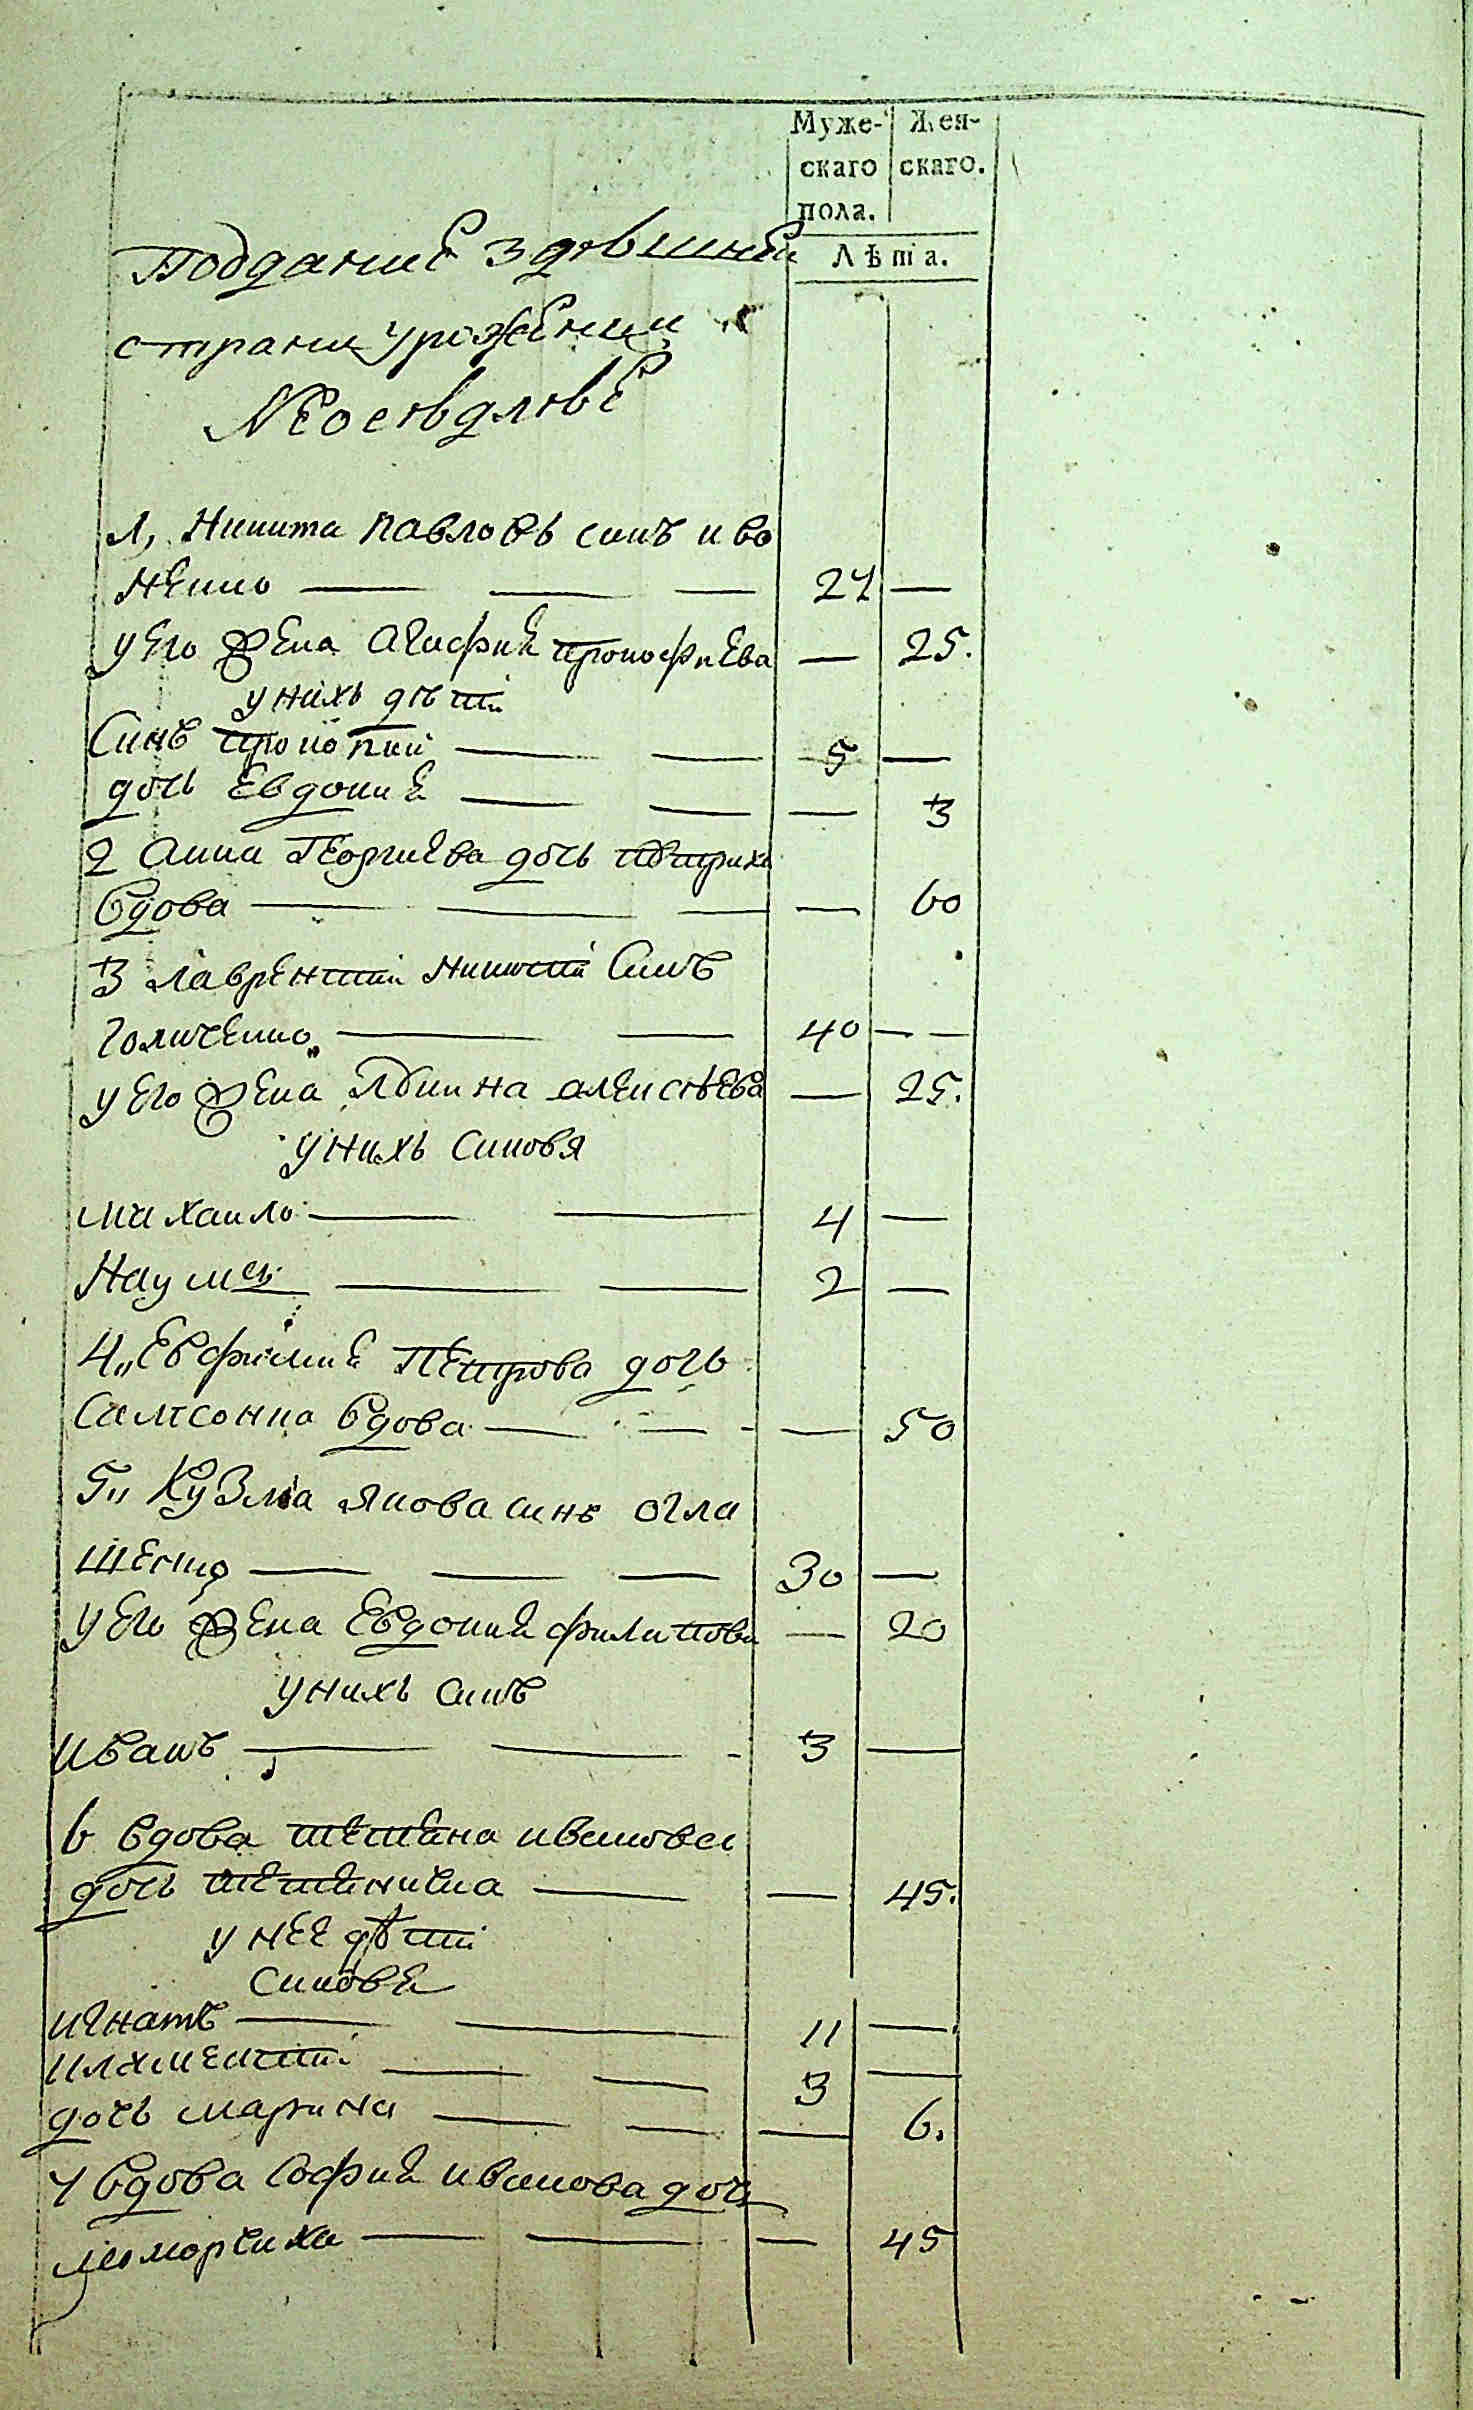 Муже-
скаго
пола.
Жен-
скаго.
Лѣта.
Подданіе здѣшнеи
страни урожѣнци
Неосѣдліе
1, Никита павловъ синъ иво
ненко — — — 27 —
у его жена Агафия прокофиева — 25.
у нихъ дѣти
Синъ прокопий — — 5 —
дочь Евдокия — — — 3
2 Анна Георгиева дочь
вдова — — — — 60
3 лаврентий никитий Синъ
голиченко — — 40 — —
у его жена Явиина алексѣева — 25.
у нихъ синовя
михаило — — 4 —
Наумъ — — 2 —
4„ Евфимия Петрова дочь
Самсонка вдова — — — 50
5„ Кузма якова синъ огла
шенко — — — 30 —
у его жена Евдокия филипова — 20
у нихъ синъ
иванъ — — - 3 —
6 вдова тетяна иванова
дочь — — 45.
у нее дѣти
синове
игнатъ — — 11 —
климентий — — 3 —
дочь марина — — — 6.
7 вдова софия иванова дочь
— — — 45